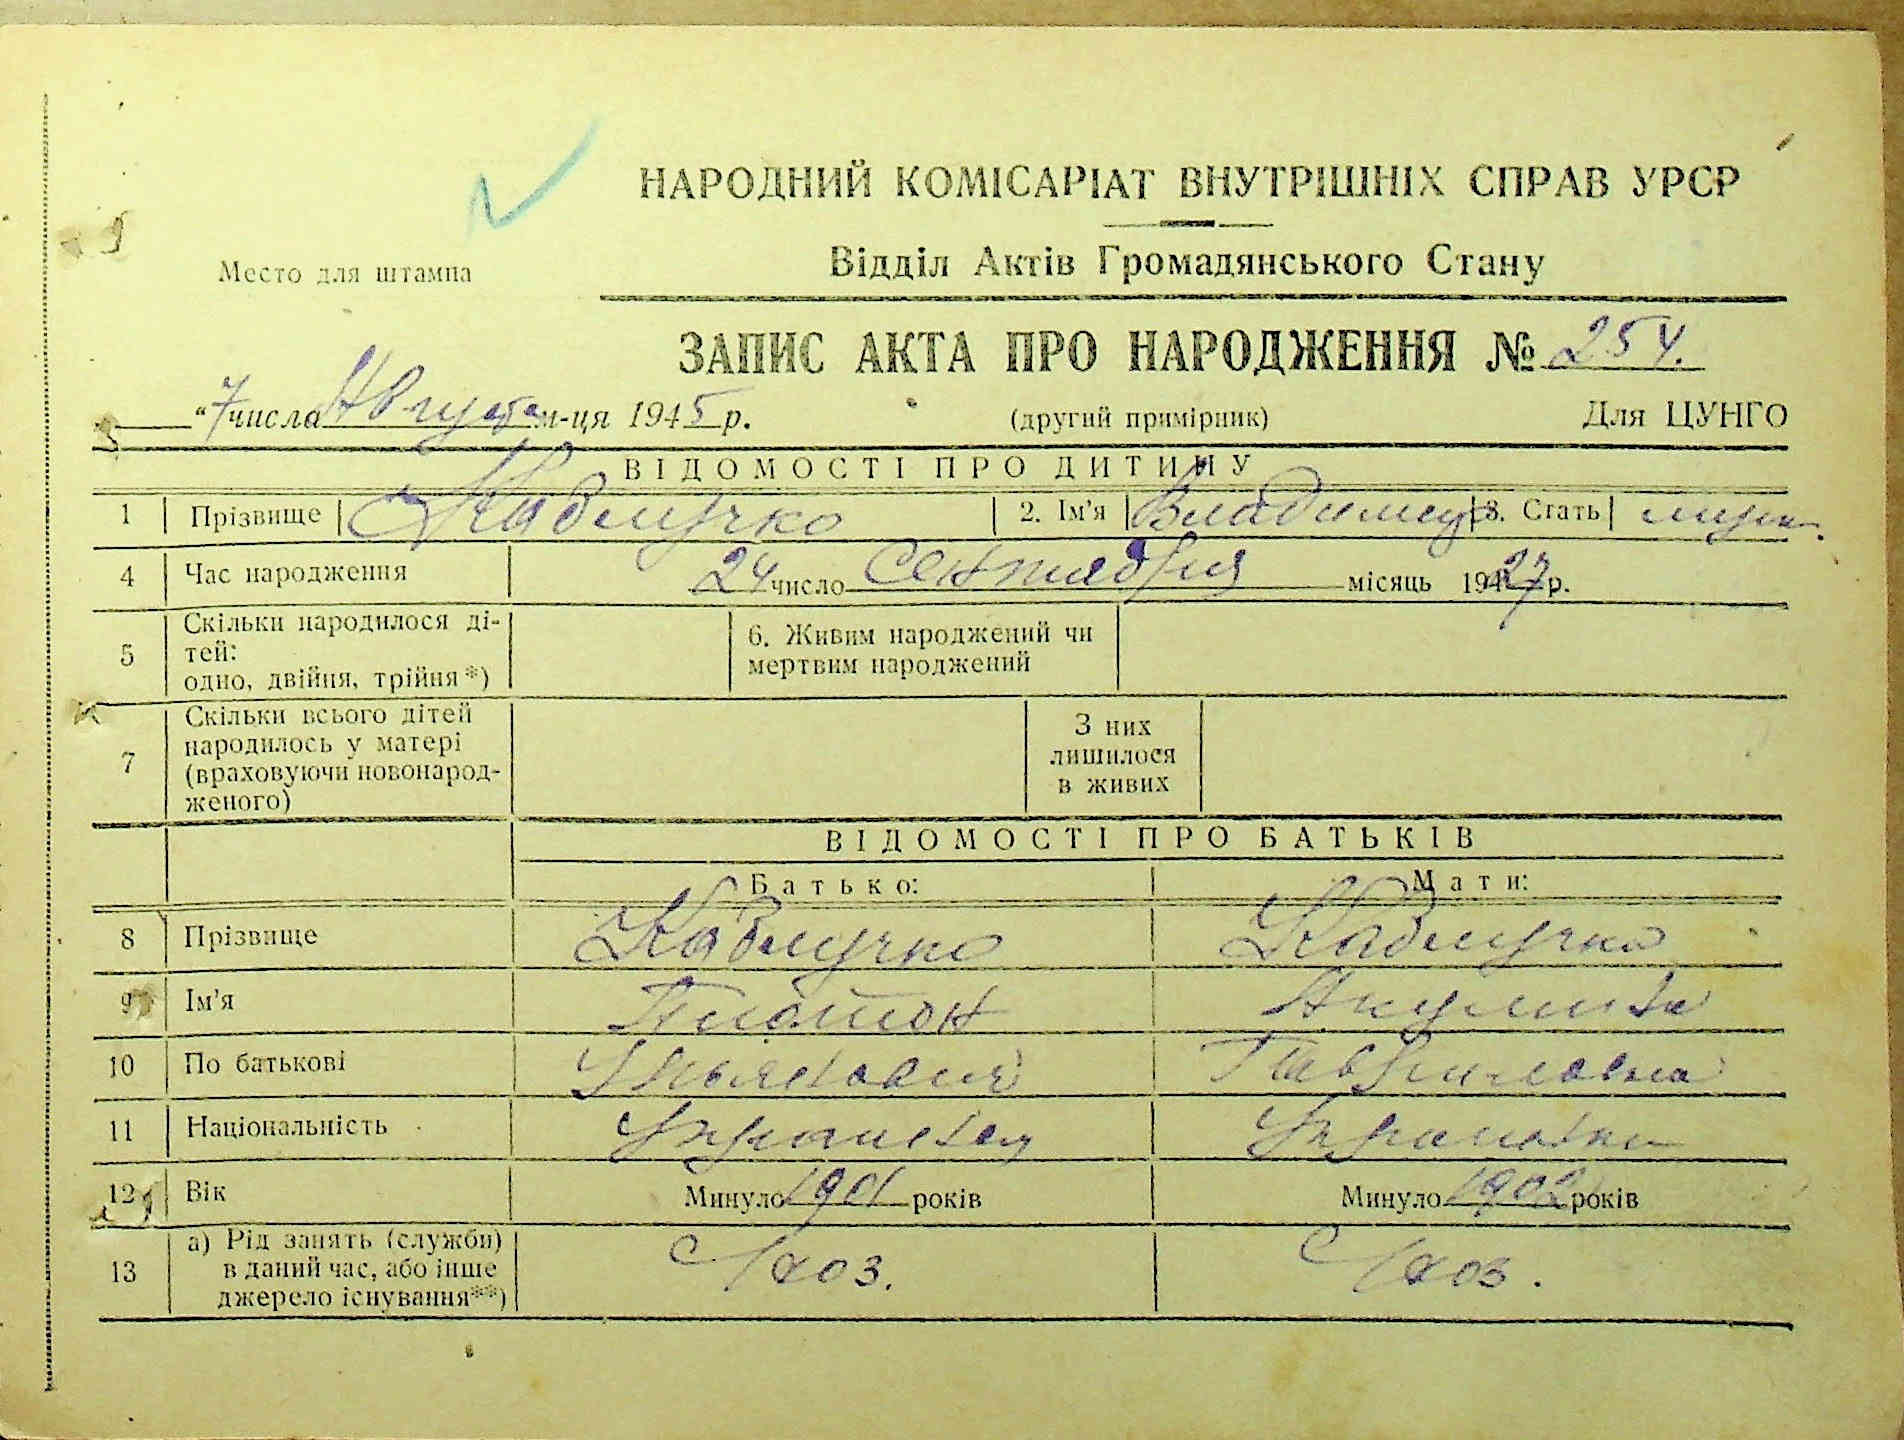 НАРОДНИЙ КОМІСАРІАТ ВНУТРІШНІХ СПРАВ УРСР
Место для штампа
Відділ Актів Громадянського Стану
ЗАПИС АКТА ПРО НАРОДЖЕННЯ № 254.
"7 числа Августа м-ця 1945 р.
(другий примірник)
Для ЦУНГО
ВІДОМОСТІ ПРО ДИТИНУ
1 Прізвище Каблучко 2. Ім'я Владимир 3. Стать муж.
4 Час народження 24 число Сентября місяць 1927 р.
5 Скільки народилося ді-
тей:
одно, двійня, трійня*)
6. Живим народжений чи
мертвим народжений
7 Скільки всього дітей
народилось у матері
(враховуючи новонарод-
женого)
З них
лишилося
в живих
ВІДОМОСТІ ПРО БАТЬКІВ
Батько: Мати:
8 Прізвище Каблучко Каблучко
9 Ім'я Платон Акулина
10 По батькові Ульянович Гавриловна
11 Національність Украинец Украинка
12 Вік Минуло 1901 років Минуло 1902 років
13 а) Рід занять (служби)
в даний час, або інше
джерело існування**)
С/хоз. С/хоз.